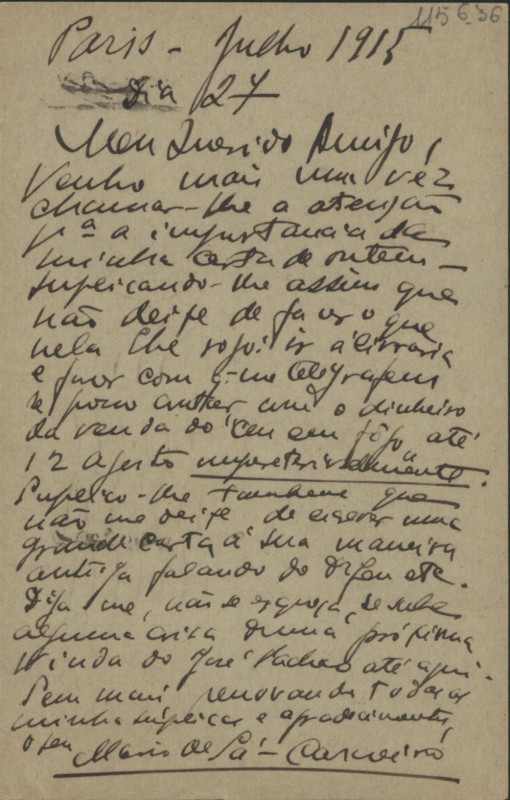 115⁶-36
Paris - Julho 1915
Dia 27
Meu Querido Amigo,
Venho mais uma vez
chamar-lhe a atenção
pª a importancia da
minha carta de ontem -
suplicando-lhe assim que
não deixe de fazer o que
nela lhe rogo: ir á livraria
e fazer com q. me telegrafem
se posso contar com o dinheiro
da venda do Ceu em fôgo até
12 Agosto impreterivelmente.
Suplico-lhe tambem que
não me deixe de escrever uma
grande carta á sua maneira
antiga falando do Orfeu etc.
Diga-me, não se esqueça, se sabe
alguma coisa duma próxima
vinda do José Pacheco até aqui.
Sem mais, renovando todas as
minhas súplicas e agradecimentos,
o seu Mário de Sá-Carneiro